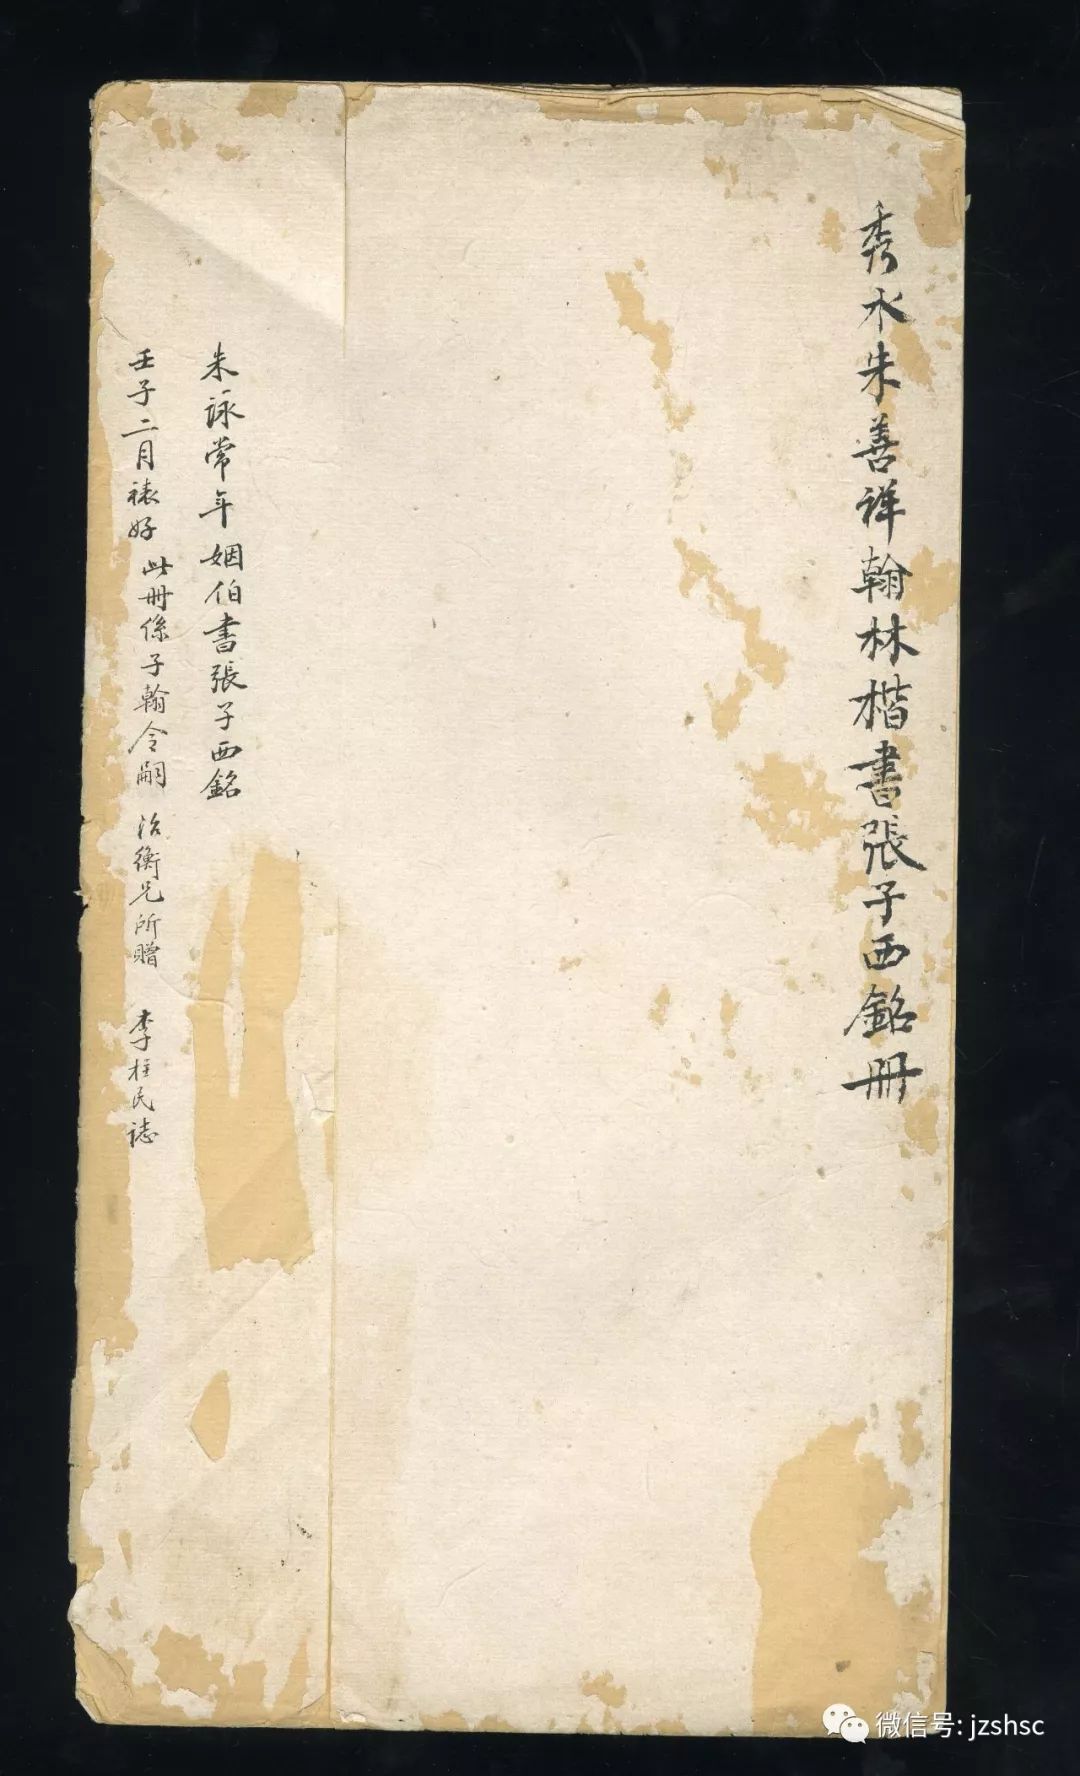 秀水朱善祥翰林楷書張子西銘冊
朱詠常年姻伯書張子西銘
壬子二月裱好 此冊係子翰令嗣 治衡兄所贈 李柱民誌
微信号: jzshsc